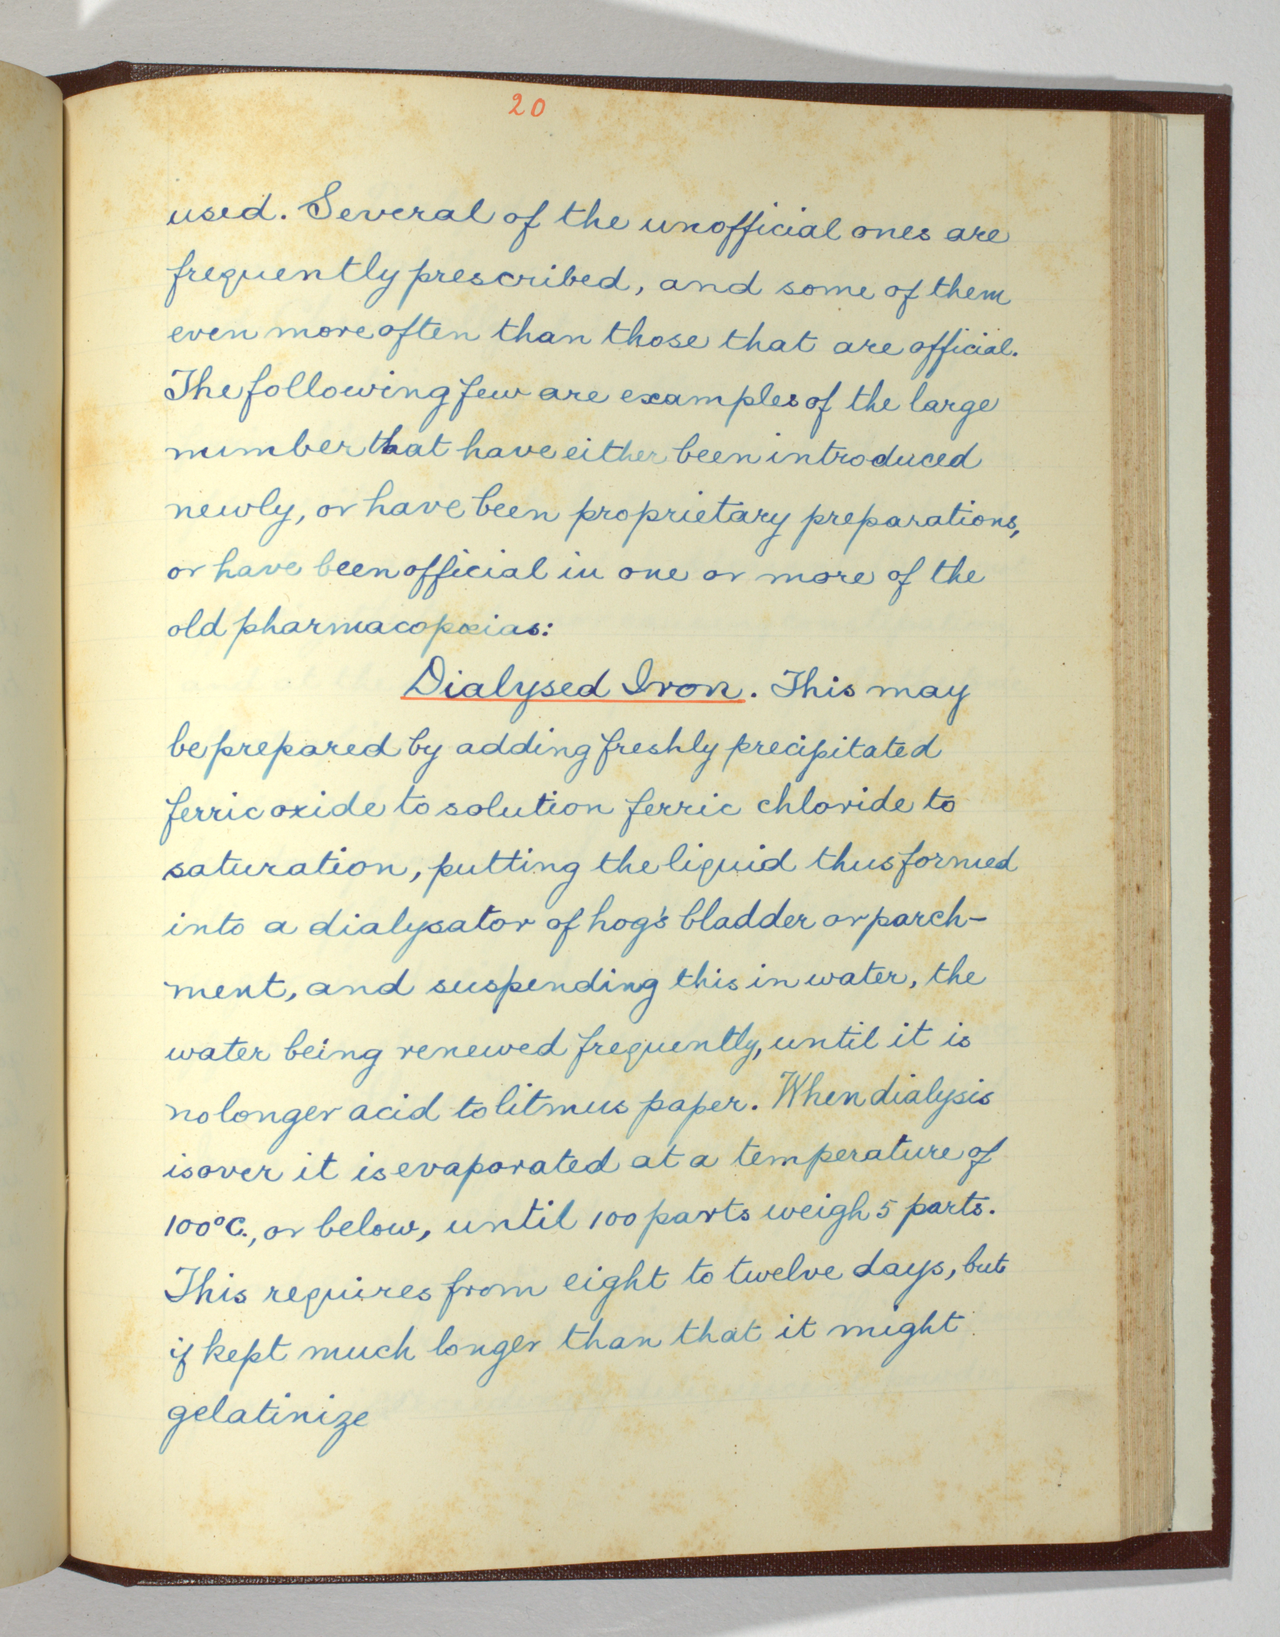 20
used. Several of the unofficial ones are
frequently prescribed, and some of them
even more often than those that are official.
The following few are examples of the large
number that have either been introduced
newly, or have been proprietary preparations,
or have been official in one or more of the
old pharmacopœias:
Dialysed Iron. This may
be prepared by adding freshly precipitated
ferric oxide to solution ferric chloride to
saturation, putting the liquid thus formed
into a dialysator of hog's bladder or parch-
ment, and suspending this in water, the
water being renewed frequently, until it is
no longer acid to litmus paper. When dialysis
is over it is evaporated at a temperature of
100°C., or below, until 100 parts weigh 5 parts.
This requires from eight to twelve days, but
if kept much longer than that it might
gelatinize